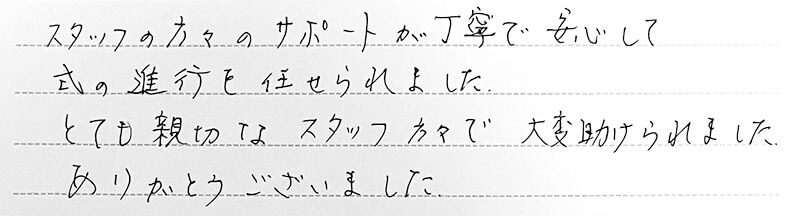 スタッフの方々のサポートが丁寧で安心して
式の進行を任せられました.
とても親切なスタッフ方々で 大変助けられました.
ありがとうございました.